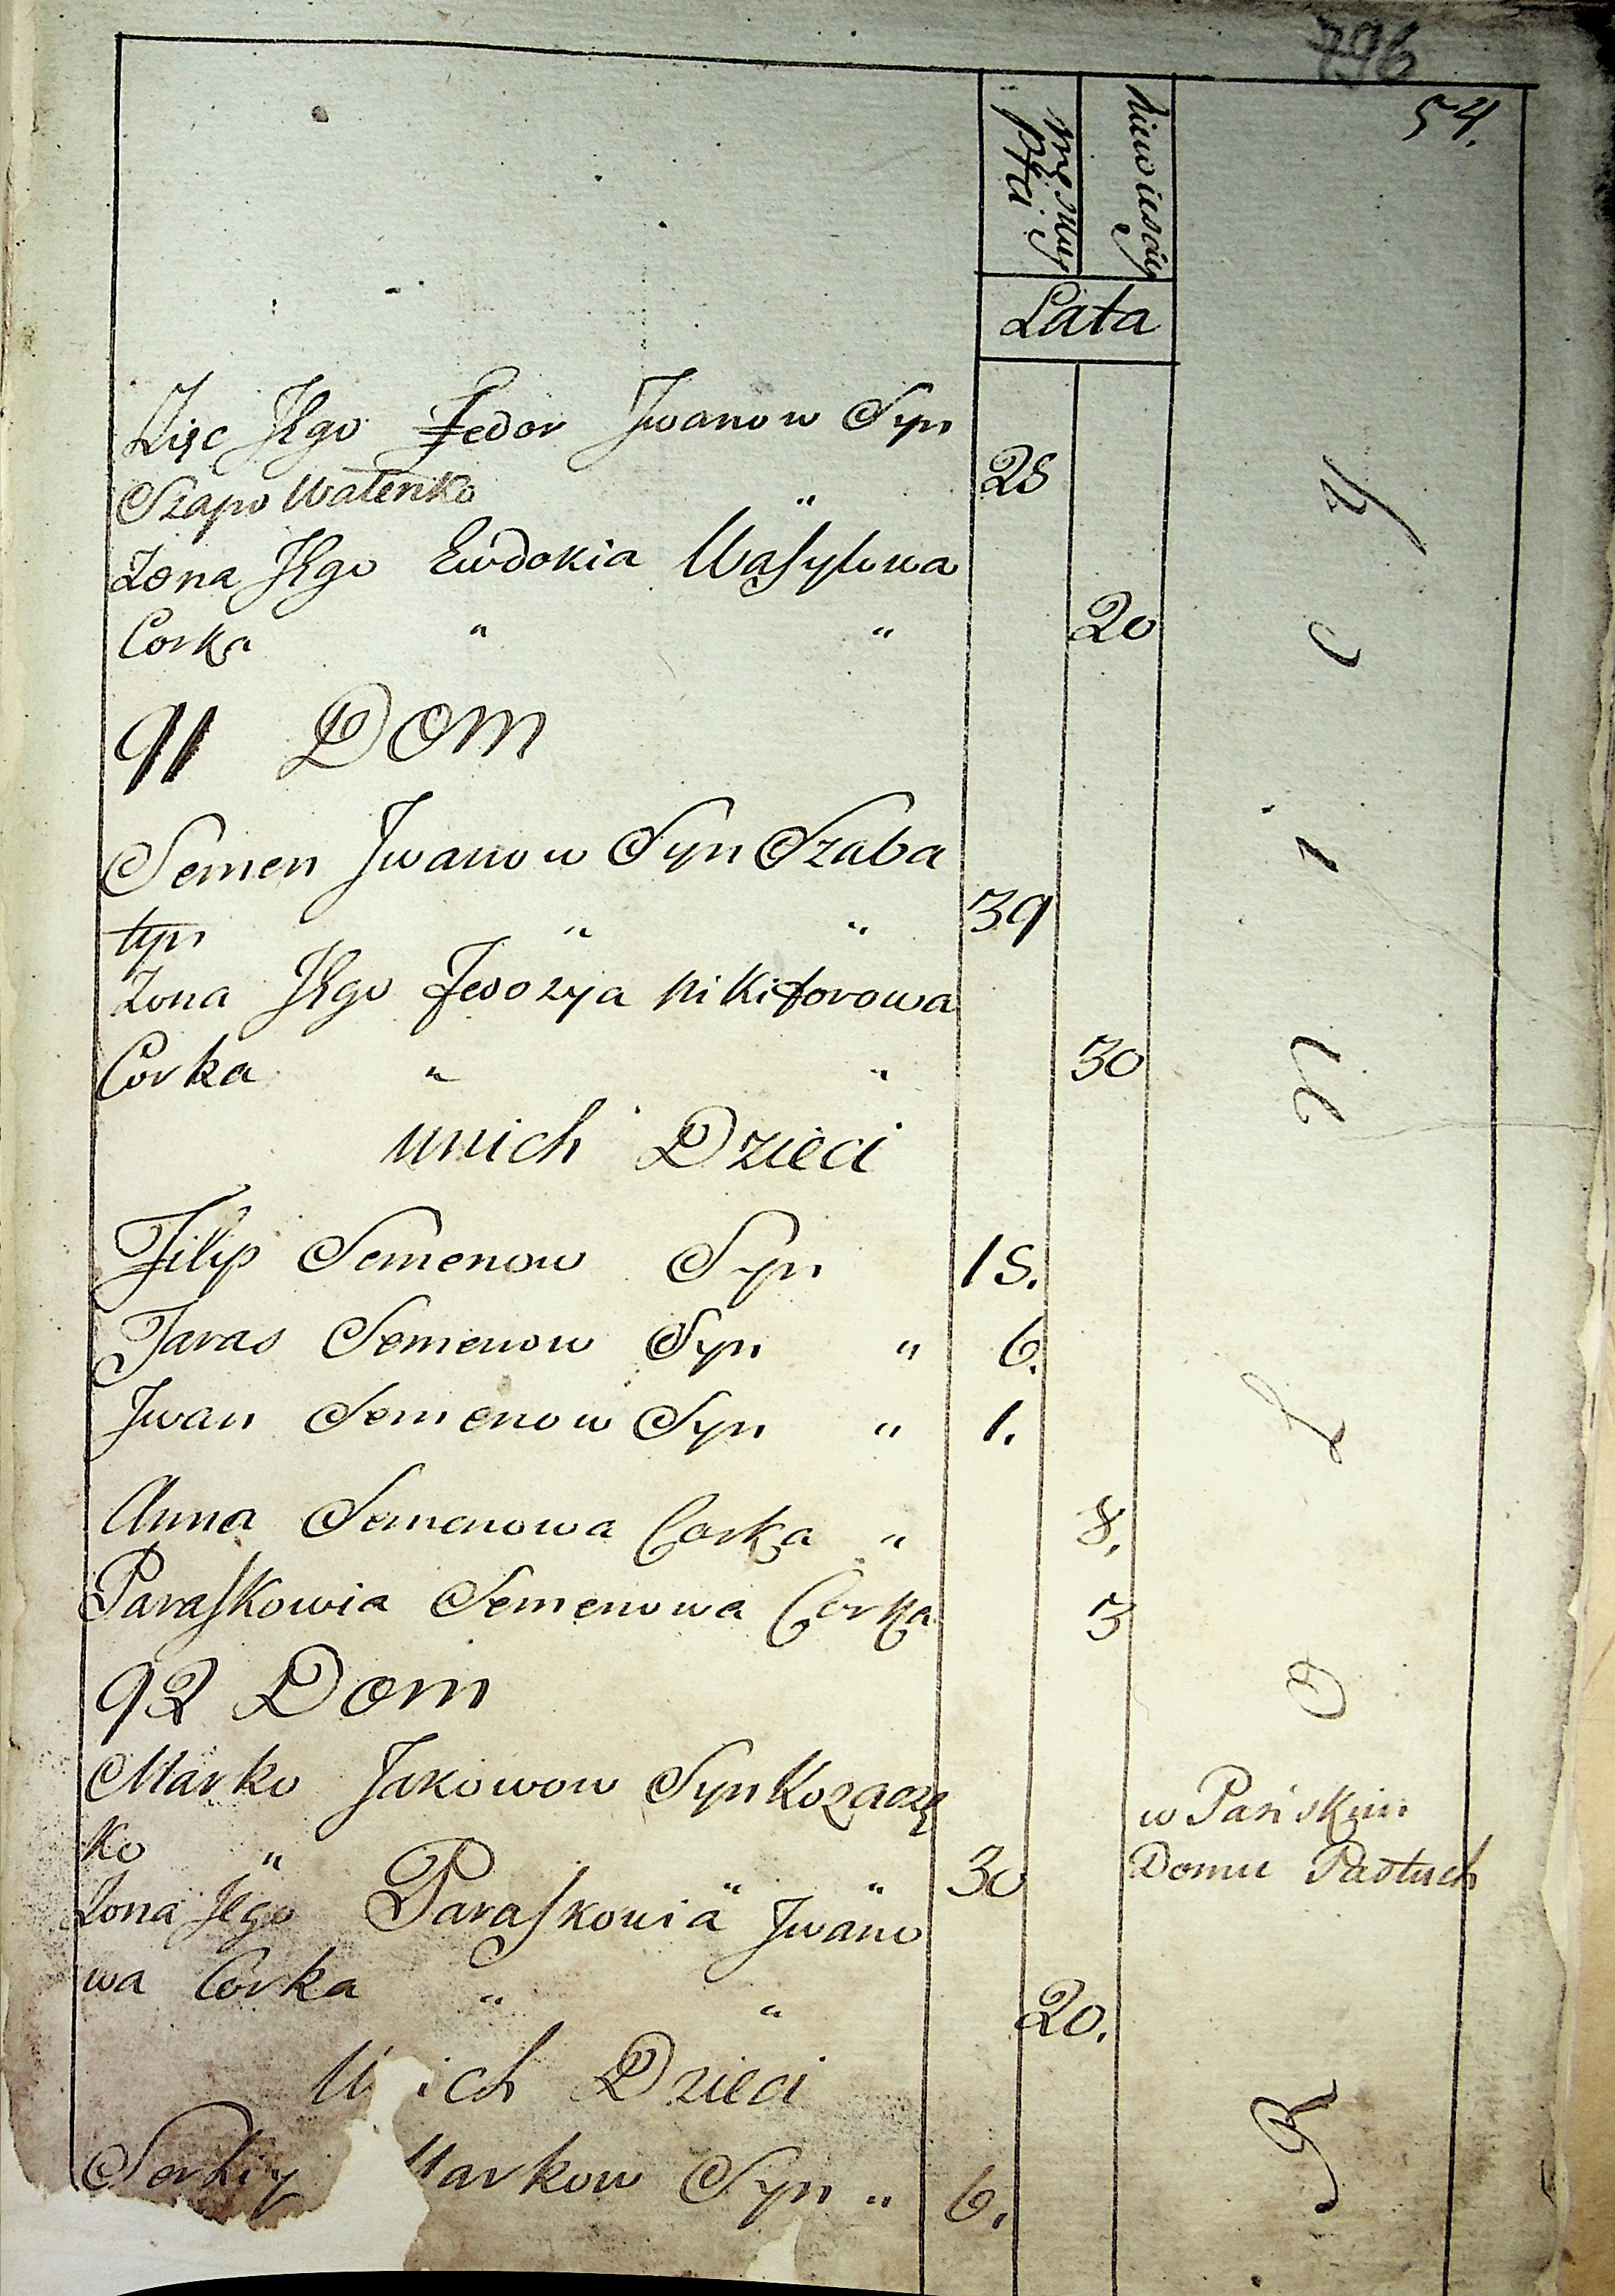 796
54.
męskiey płci
niewiesciey
Lata
Zięc Jego Fedor Jwanow Syn
Szapowałenko " 25
Zona Jego Ewdokia Wasylowa
Corka " " 20
91 Dom
Semen Jwanow Syn Szaba
tyn " " 39
Zona Jego Fewozya Nikiforowa
Corka " " 30
unich Dzieci
Filip Semenow Syn 15.
Taras Semenow Syn " 6.
Jwan Semenow Syn " 1.
Anna Semenowa Corka " 8.
Paraskowia Semenowa Corka 3
92 Dom
Marko Jakowow Syn Kozacze
ko " " 30 w Pańskim
Domu Pastuch
Zona Jego Paraskowia Jwano
wa Corka " " 20.
U ich Dzieci
Serhiy Markow Syn " 6.
R o l n i c y